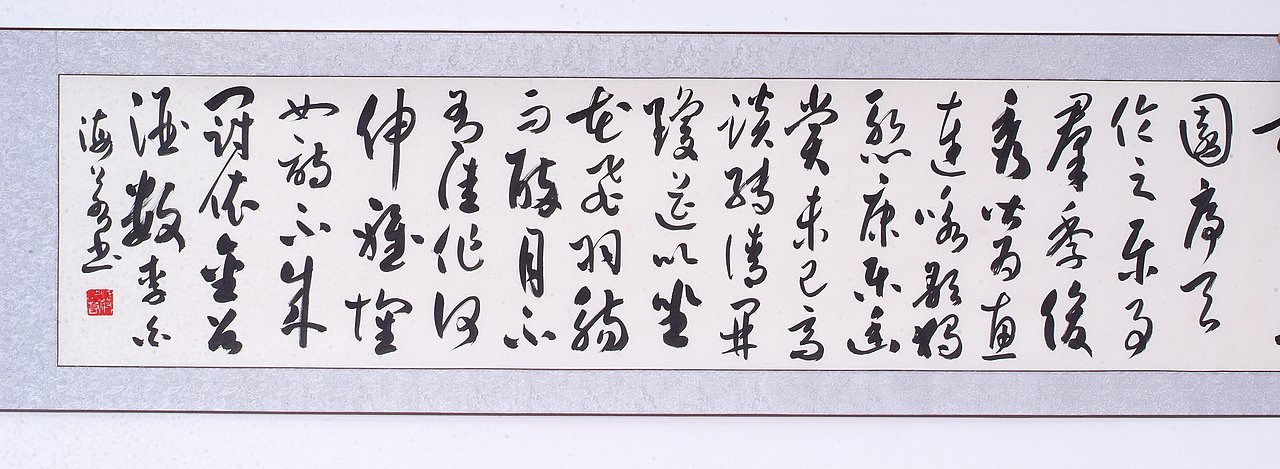 園序天
倫之樂事
羣季俊
秀皆為惠
連咏歌獨
慙康樂幽
賞未已高
談轉清開
瓊筵以坐
花飛羽觴
而醉月不
有佳作何
伸雅懷
如詩不成
罰依金谷
酒數李白
海书